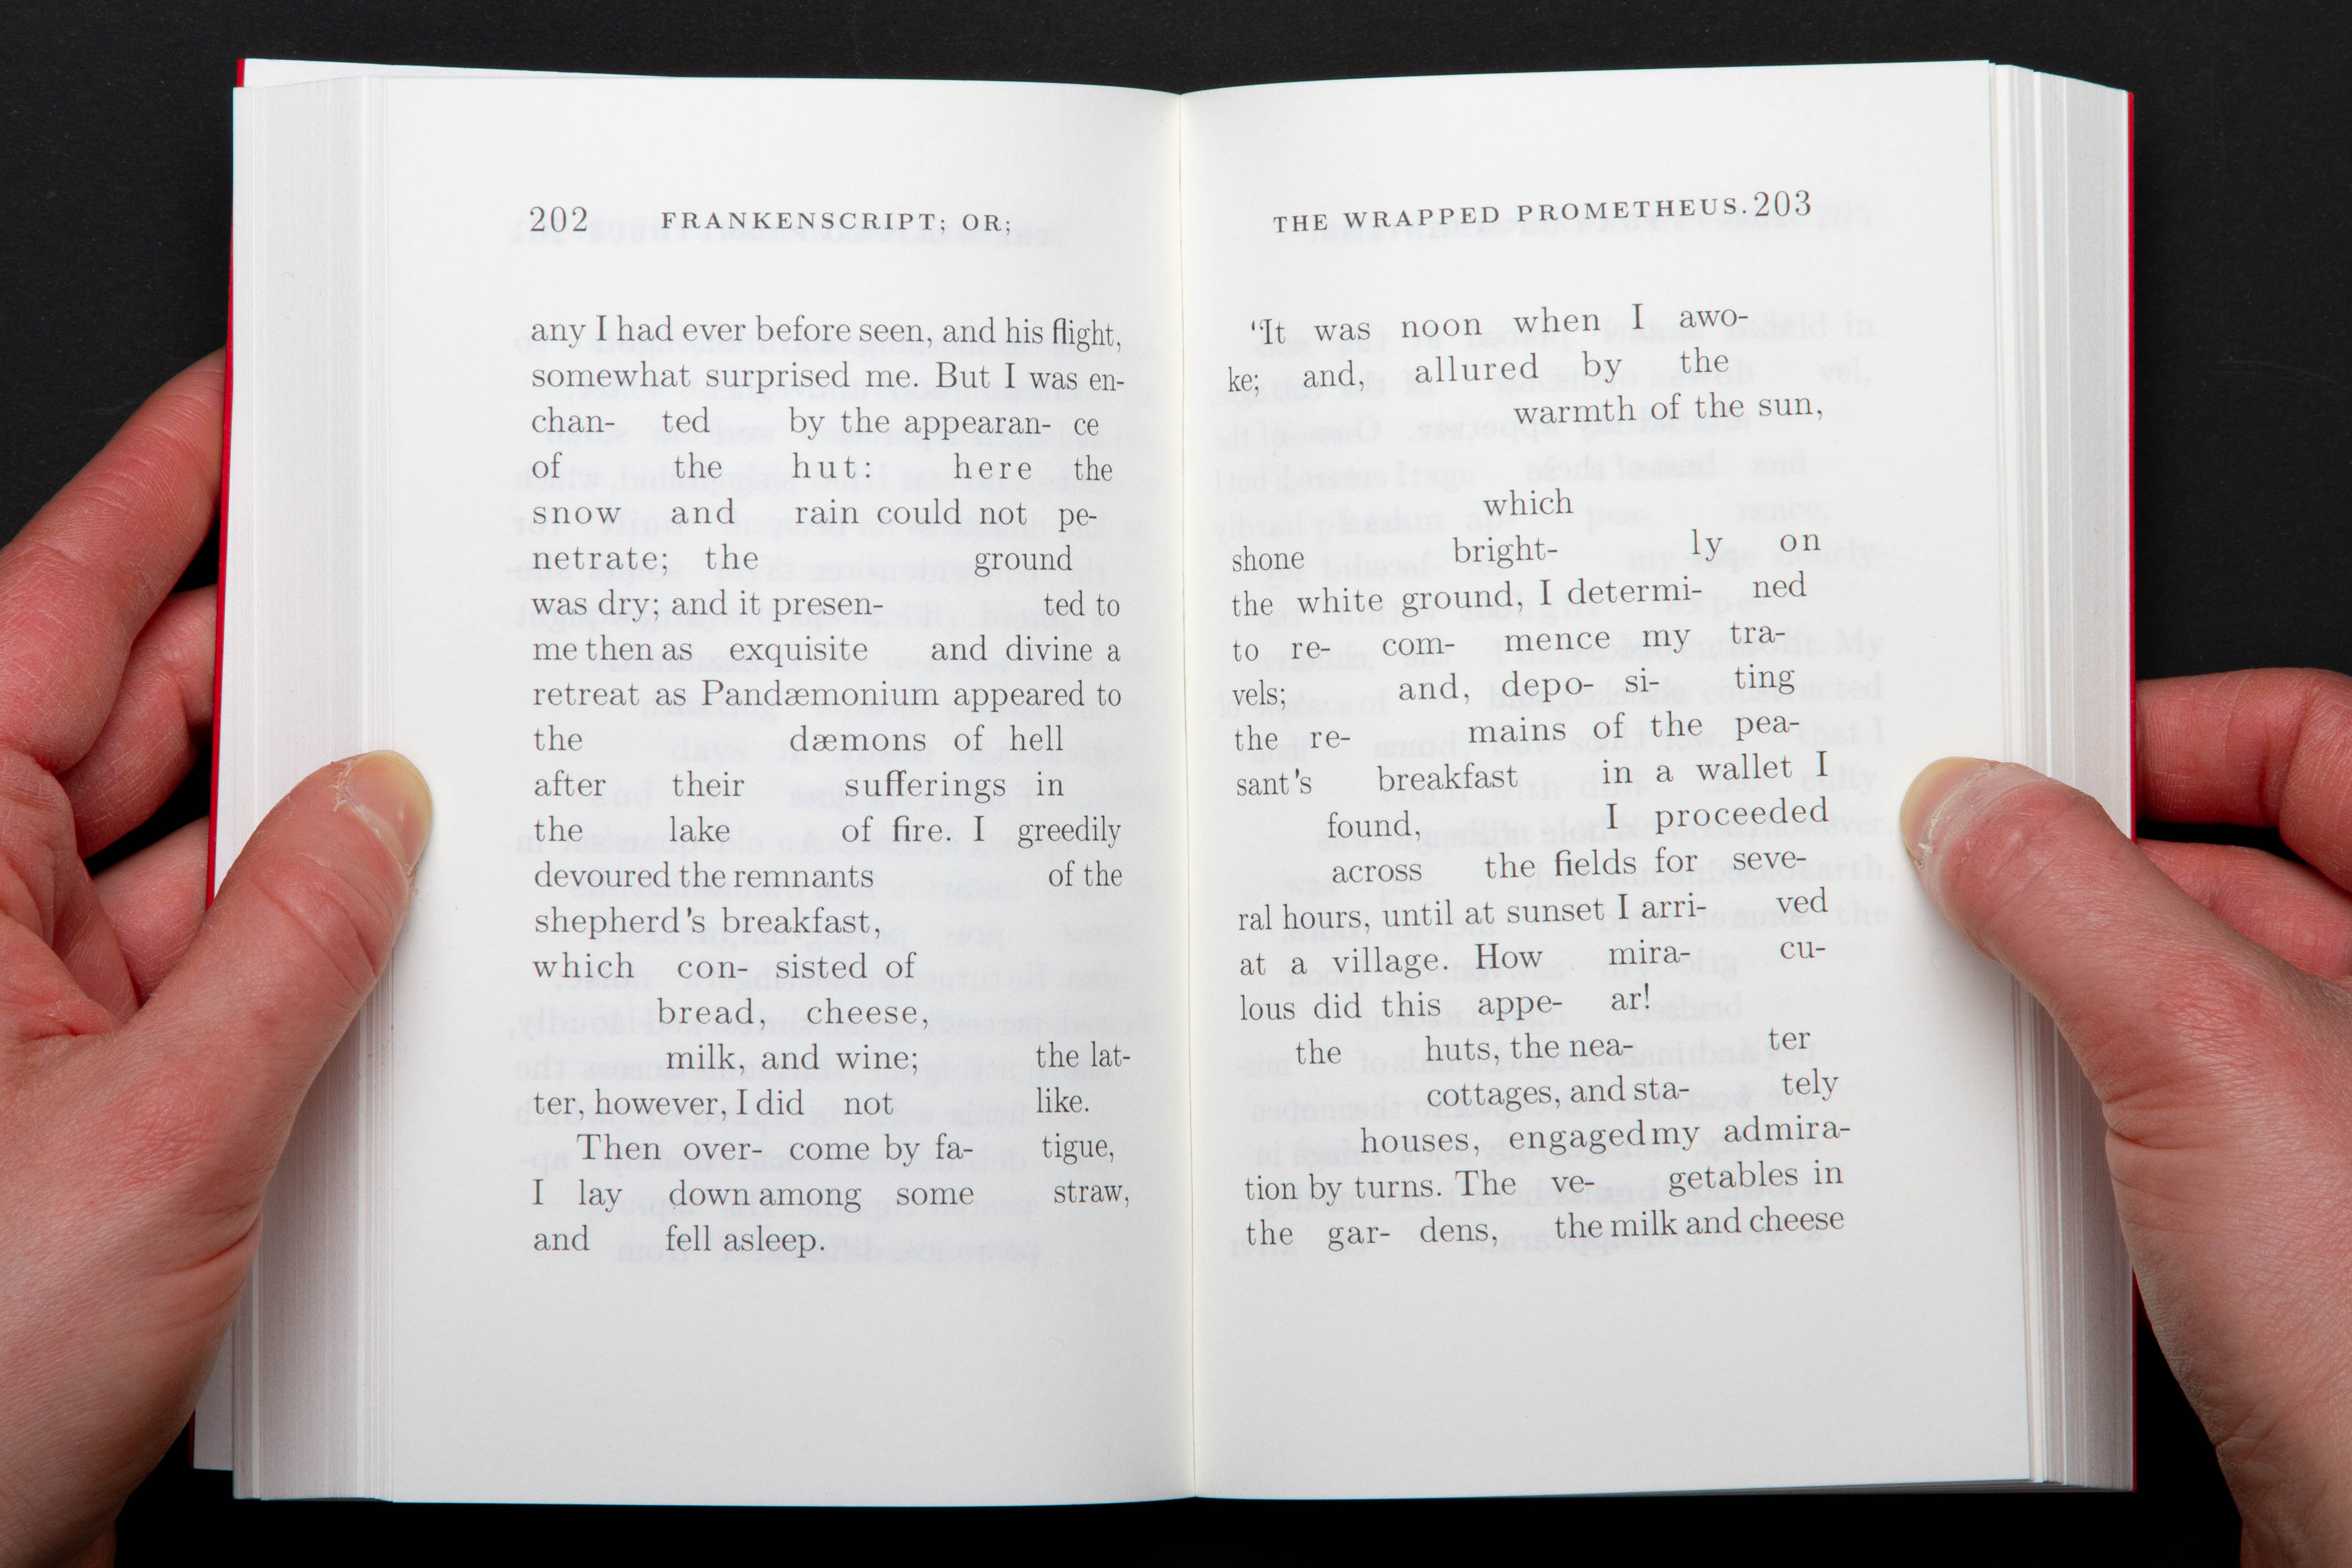 202 FRANKENSCRIPT; OR;
any I had ever before seen, and his flight,
somewhat surprised me. But I was en-
chan- ted by the appearan- ce
of the hut: here the
snow and rain could not pe-
netrate; the ground
was dry; and it presen- ted to
me then as exquisite and divine a
retreat as Pandæmonium appeared to
the dæmons of hell
after their sufferings in
the lake of fire. I greedily
devoured the remnants of the
shepherd's breakfast,
which con- sisted of
bread, cheese,
milk, and wine; the lat-
ter, however, I did not like.
Then over- come by fa- tigue,
I lay down among some straw,
and fell asleep.
THE WRAPPED PROMETHEUS. 203
“It was noon when I awo-
ke; and, allured by the
warmth of the sun,
which
shone bright- ly on
the white ground, I determi- ned
to re- com- mence my tra-
vels; and, depo- si- ting
the re- mains of the pea-
sant's breakfast in a wallet I
found, I proceeded
across the fields for seve-
ral hours, until at sunset I arri- ved
at a village. How mira- cu-
lous did this appe- ar!
the huts, the nea- ter
cottages, and sta- tely
houses, engaged my admira-
tion by turns. The ve- getables in
the gar- dens, the milk and cheese